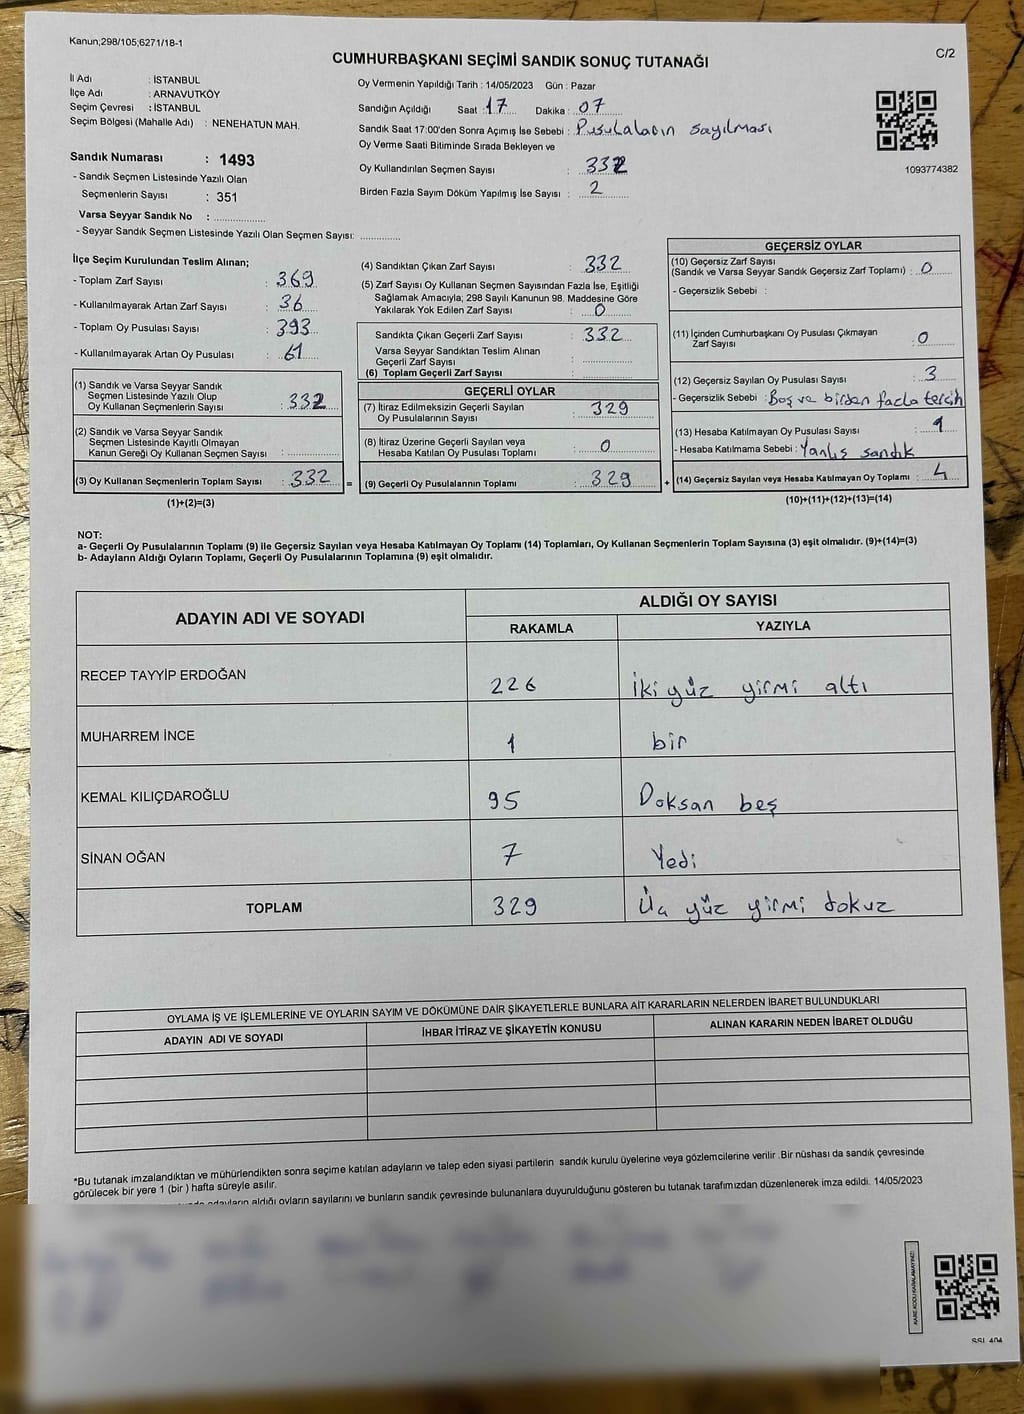 Kanun;298/105;6271/18-1
C/2
CUMHURBAŞKANI SEÇİMİ SANDIK SONUÇ TUTANAĞI
İl Adı : İSTANBUL
İlçe Adı : ARNAVUTKÖY
Seçim Çevresi : İSTANBUL
Seçim Bölgesi (Mahalle Adı) : NENEHATUN MAH.
Sandık Numarası : 1493
- Sandık Seçmen Listesinde Yazılı Olan
Seçmenlerin Sayısı : 351
Varsa Seyyar Sandık No :
- Seyyar Sandık Seçmen Listesinde Yazılı Olan Seçmen Sayısı:
Oy Vermenin Yapıldığı Tarih : 14/05/2023 Gün : Pazar
Sandığın Açıldığı Saat : 17 Dakika : 07
Sandık Saat 17:00'den Sonra Açımış İse Sebebi : Pusulaların sayılması
Oy Verme Saati Bitiminde Sırada Bekleyen ve
Oy Kullandırılan Seçmen Sayısı : 332
Birden Fazla Sayım Döküm Yapılmış İse Sayısı : 2
1093774382
İlçe Seçim Kurulundan Teslim Alınan;
- Toplam Zarf Sayısı : 369
- Kullanılmayarak Artan Zarf Sayısı : 36
- Toplam Oy Pusulası Sayısı : 393
- Kullanılmayarak Artan Oy Pusulası : 61
(1) Sandık ve Varsa Seyyar Sandık
Seçmen Listesinde Yazılı Olup
Oy Kullanan Seçmenlerin Sayısı : 332
(2) Sandık ve Varsa Seyyar Sandık
Seçmen Listesinde Kayıtlı Olmayan
Kanun Gereği Oy Kullanan Seçmen Sayısı :
(3) Oy Kullanan Seçmenlerin Toplam Sayısı : 332
(1)+(2)=(3)
(4) Sandıktan Çıkan Zarf Sayısı : 332
(5) Zarf Sayısı Oy Kullanan Seçmen Sayısından Fazla İse, Eşitliği
Sağlamak Amacıyla; 298 Sayılı Kanunun 98. Maddesine Göre
Yakılarak Yok Edilen Zarf Sayısı : 0
Sandıkta Çıkan Geçerli Zarf Sayısı : 332
Varsa Seyyar Sandıktan Teslim Alınan
Geçerli Zarf Sayısı :
(6) Toplam Geçerli Zarf Sayısı :
GEÇERLİ OYLAR
(7) İtiraz Edilmeksizin Geçerli Sayılan
Oy Pusulalarının Sayısı : 329
(8) İtiraz Üzerine Geçerli Sayılan veya
Hesaba Katılan Oy Pusulası Toplamı : 0
= (9) Geçerli Oy Pusulalarının Toplamı : 329
GEÇERSİZ OYLAR
(10) Geçersiz Zarf Sayısı
(Sandık ve Varsa Seyyar Sandık Geçersiz Zarf Toplamı) : 0
- Geçersizlik Sebebi :
(11) İçinden Cumhurbaşkanı Oy Pusulası Çıkmayan
Zarf Sayısı : 0
(12) Geçersiz Sayılan Oy Pusulası Sayısı : 3
- Geçersizlik Sebebi : Boş ve birden fazla tercih
(13) Hesaba Katılmayan Oy Pusulası Sayısı : 1
- Hesaba Katılmama Sebebi : Yanlış sandık
+ (14) Geçersiz Sayılan veya Hesaba Katılmayan Oy Toplamı : 4
(10)+(11)+(12)+(13)=(14)
NOT:
a- Geçerli Oy Pusulalarının Toplamı (9) ile Geçersiz Sayılan veya Hesaba Katılmayan Oy Toplamı (14) Toplamları, Oy Kullanan Seçmenlerin Toplam Sayısına (3) eşit olmalıdır. (9)+(14)=(3)
b- Adayların Aldığı Oyların Toplamı, Geçerli Oy Pusulalarının Toplamına (9) eşit olmalıdır.
ADAYIN ADI VE SOYADI
ALDIĞI OY SAYISI
RAKAMLA YAZIYLA
RECEP TAYYİP ERDOĞAN 226 İki yüz yirmi altı
MUHARREM İNCE 1 bir
KEMAL KILIÇDAROĞLU 95 Doksan beş
SİNAN OĞAN 7 Yedi
TOPLAM 329 Üç yüz yirmi dokuz
OYLAMA İŞ VE İŞLEMLERİNE VE OYLARIN SAYIM VE DÖKÜMÜNE DAİR ŞİKAYETLERLE BUNLARA AİT KARARLARIN NELERDEN İBARET BULUNDUKLARI
ADAYIN ADI VE SOYADI İHBAR İTİRAZ VE ŞİKAYETİN KONUSU ALINAN KARARIN NEDEN İBARET OLDUĞU
*Bu tutanak imzalandıktan ve mühürlendikten sonra seçime katılan adayların ve talep eden siyasi partilerin sandık kurulu üyelerine veya gözlemcilerine verilir .Bir nüshası da sandık çevresinde
görülecek bir yere 1 (bir ) hafta süreyle asılır.
adayların aldığı oyların sayılarını ve bunların sandık çevresinde bulunanlara duyurulduğunu gösteren bu tutanak tarafımızdan düzenlenerek imza edildi. 14/05/2023
KARE KODU KARALAMAYINIZ!